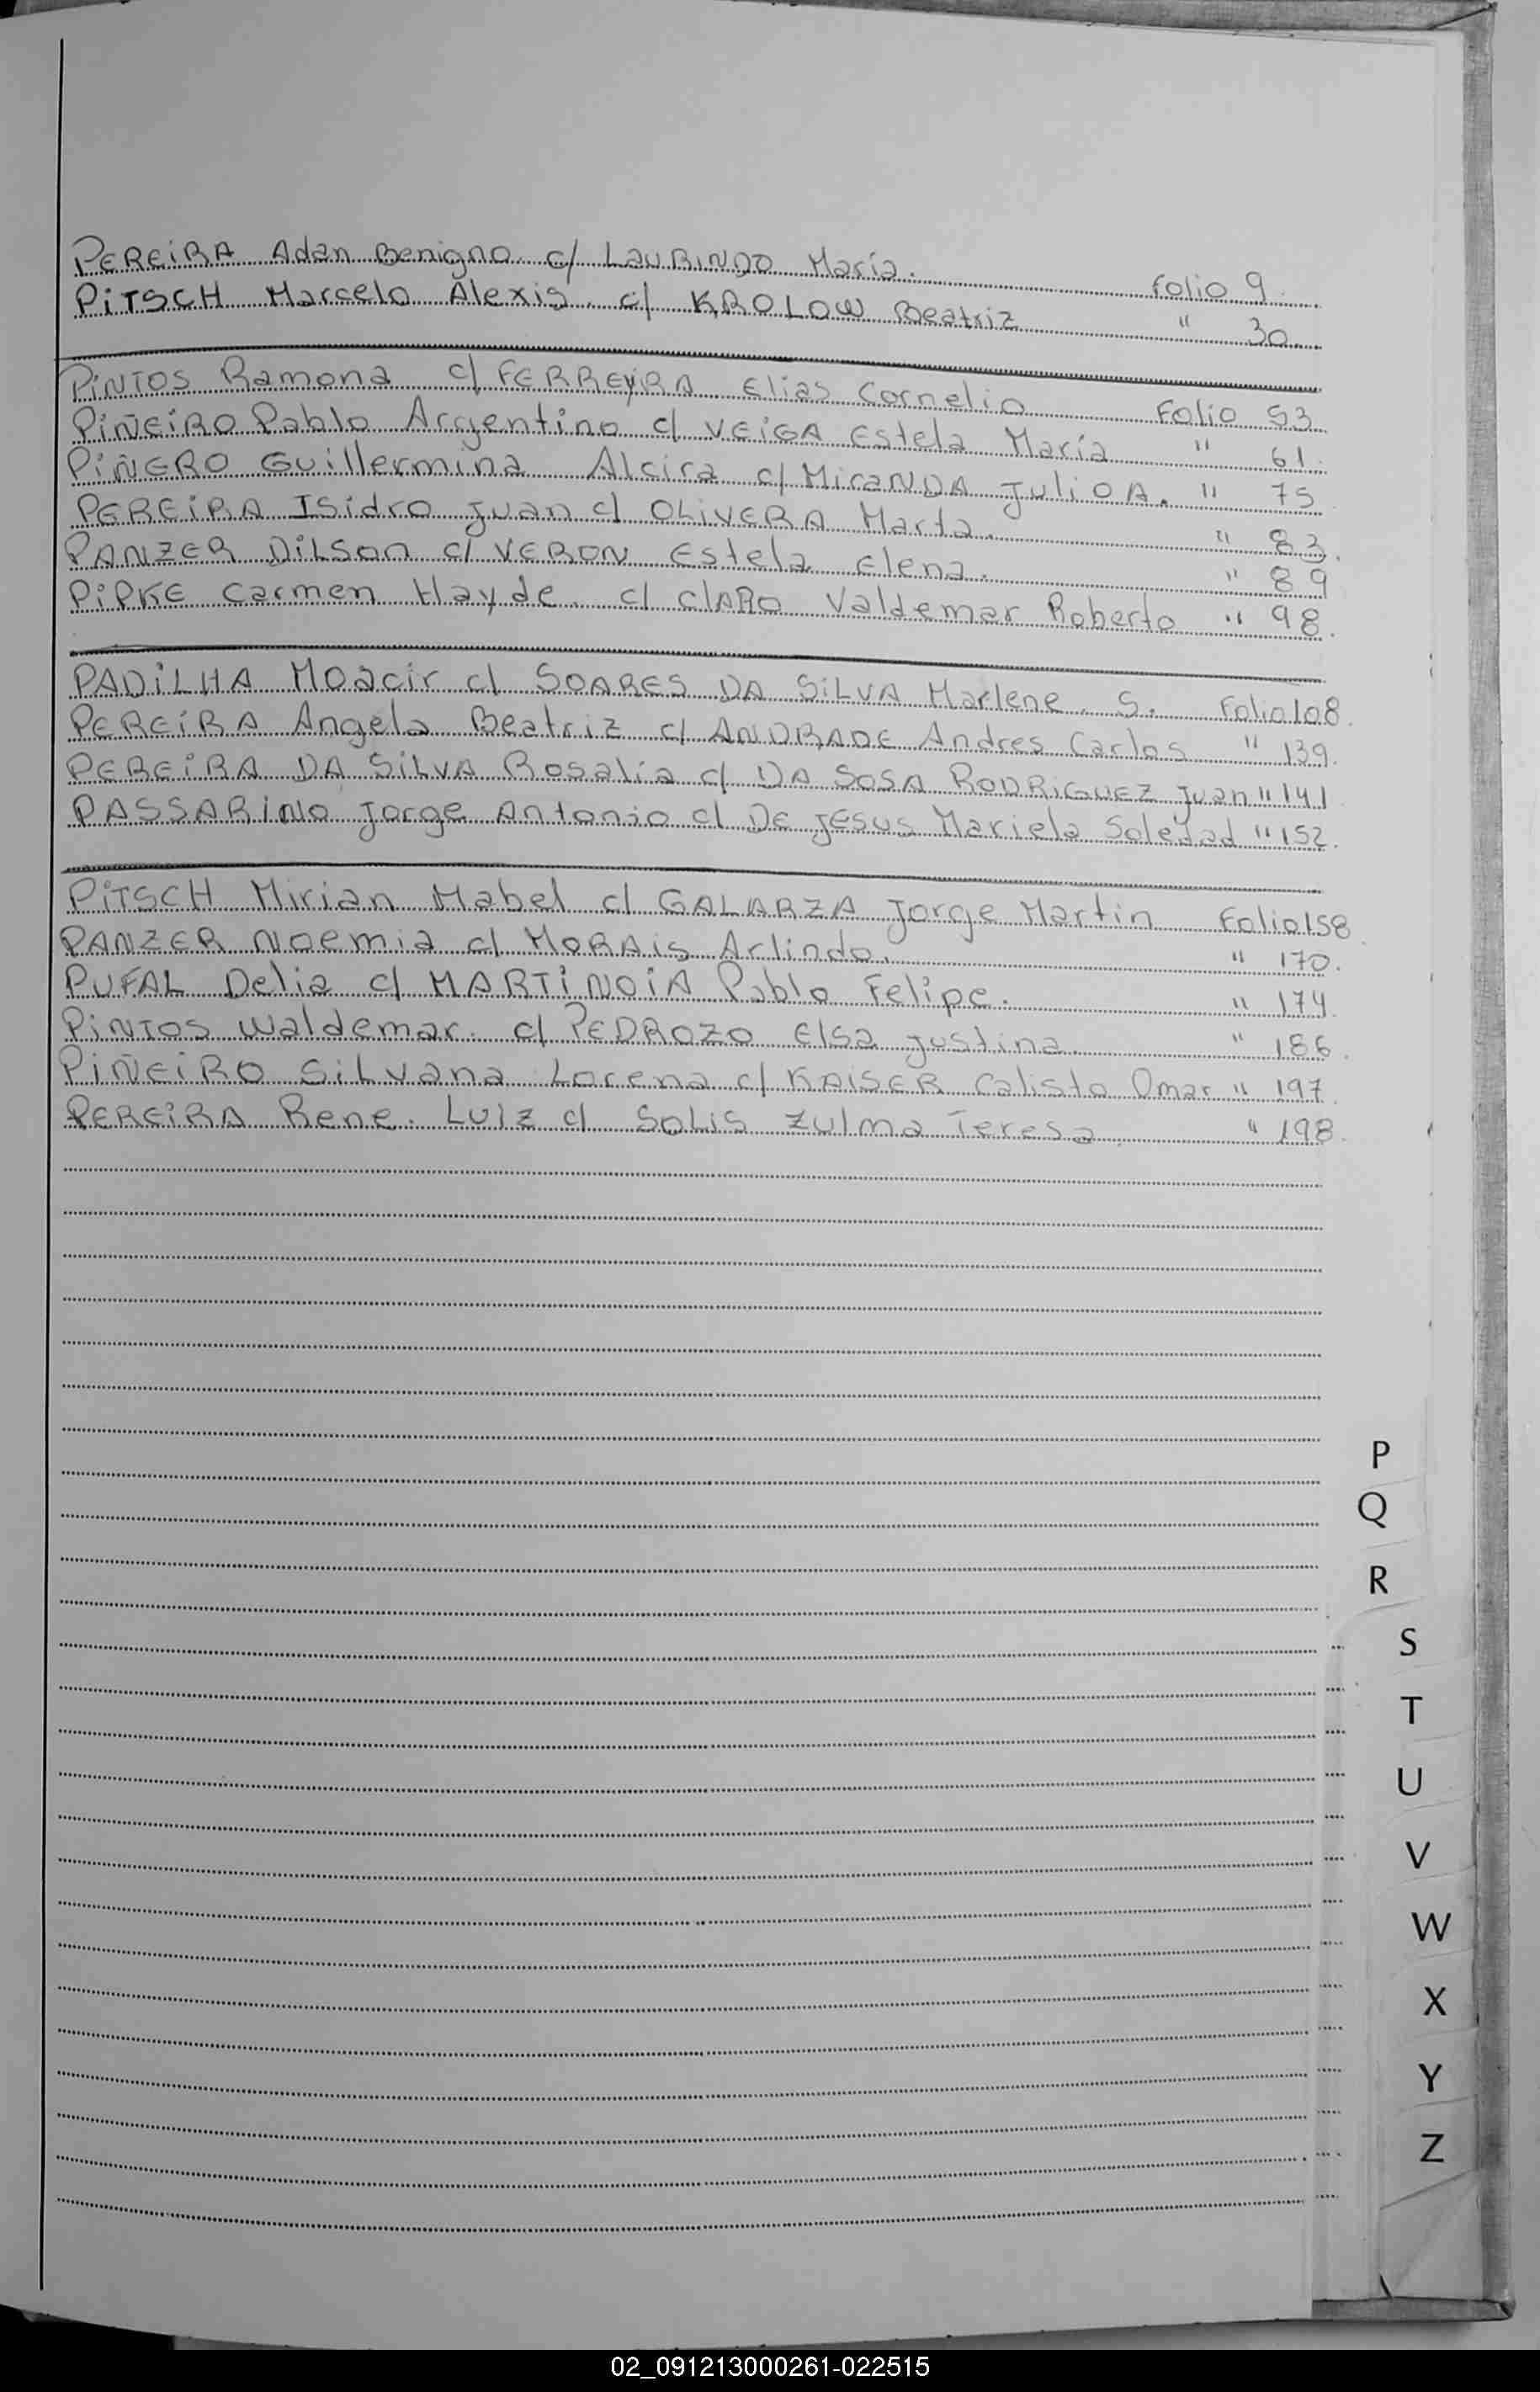 PEREIRA Adan Benigno c/ LAURINDO María. Folio 9
PITSCH Marcelo Alexis. c/ KROLOW Beatriz " 30.
PINTOS Ramona c/ FERREYRA Elias Cornelio Folio 53
PIÑEIRO Pablo Argentino c/ VEIGA Estela María " 61.
PIÑERO Guillermina Alcira c/ MIRANDA Julio A. " 75
PEREIRA Isidro Juan c/ OLIVERA Marta. " 83.
PANZER DILSON c/ VERON Estela Elena. " 89
PIPKE Carmen Hayde. c/ CLARO Valdemar Roberto " 98.
PADILHA Moacir c/ SOARES DA SILVA Marlene. S. Folio 108.
PEREIRA Angela Beatriz c/ ANDRADE Andres Carlos " 139.
PEREIRA DA SILVA Rosalía c/ DA SOSA RODRIGUEZ Juan " 141
PASSARINO Jorge Antonio c/ DE JESUS Mariela Soledad " 152.
PITSCH Mirian Mabel c/ GALARZA Jorge Martín Folio 158
PANZER Noemia c/ MORAIS Arlindo. " 170.
PUFAL Delia c/ MARTINOIA Pablo Felipe. " 174.
PINTOS Waldemar. c/ PEDROZO Elsa Justina. " 186.
PIÑEIRO Silvana Lorena c/ KAISER Calisto Omar " 197.
PEREIRA Rene. Luiz c/ SOLIS Zulma Teresa. " 198.
P
Q
R
S
T
U
V
W
X
Y
Z
02_091213000261-022515